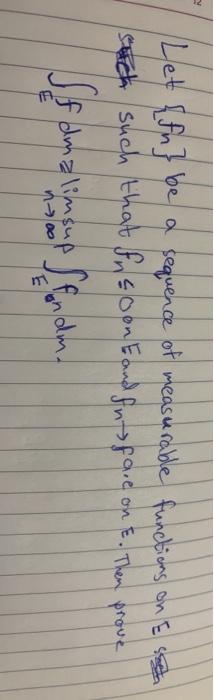 Let {fn} be a sequence of measurable functions on E
such that fn ≤ 0 on E and fn → f a.e on E. Then prove
∫_E f dm ≥ limsup_{n→∞} ∫_E fn dm.